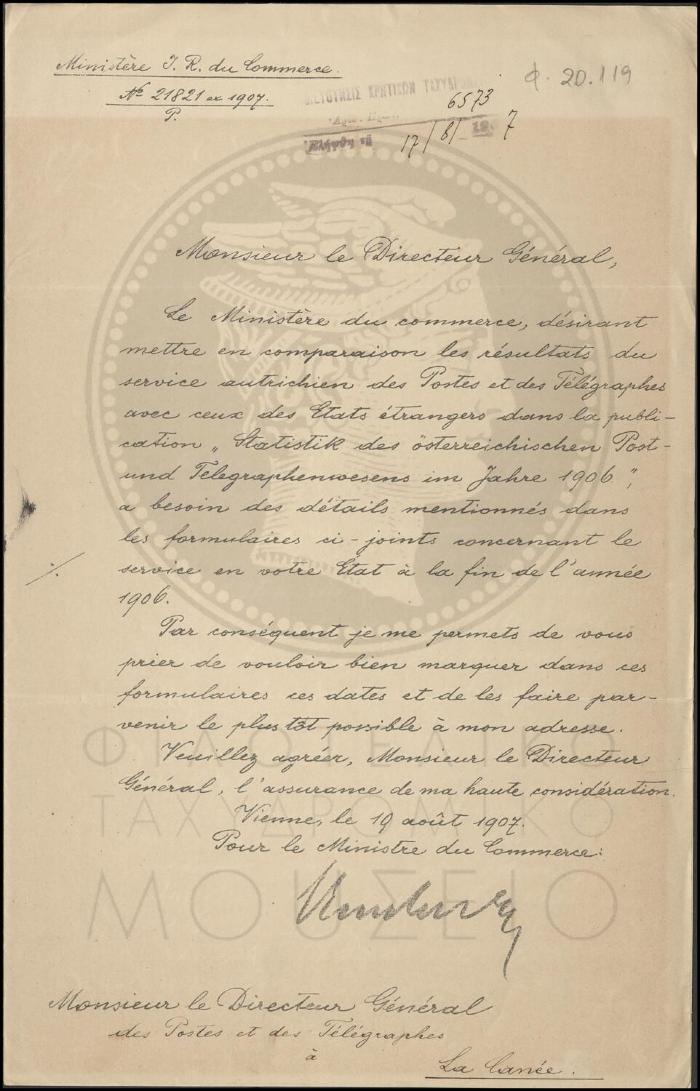 Ministère I. R. du Commerce.
№ 21821 ex 1907.
P.
Φ. 20.119
ΚΡΗΤΙΚΩΝ ΤΑΧΥΔΡΟΜ
6573
Ἐλήφθη τῇ 17/8/ 190 7
Monsieur le Directeur Général,
Le Ministère du commerce, désirant
mettre en comparaison les résultats du
service autrichien des Postes et des Télégraphes
avec ceux des Etats étrangers dans la publi-
cation „ Statistik des österreichischen Post-
und Telegraphenwesens im Jahre 1906 ",
a besoin des détails mentionnés dans
les formulaires ci-joints concernant le
service en votre Etat à la fin de l'année
1906.
Par conséquent je me permets de vous
prier de vouloir bien marquer dans ces
formulaires ces dates et de les faire par-
venir le plus tôt possible à mon adresse.
Veuillez agréer, Monsieur le Directeur
Général, l'assurance de ma haute considération.
Vienne, le 19 août 1907.
Pour le Ministre du Commerce:
Monsieur le Directeur Général
des Postes et des Télégraphes
à
La Canée.
ΦΙΛΟΤΕΛΙΚΟ
ΤΑΧΥΔΡΟΜΙΚΟ
ΜΟΥΣΕΙΟ